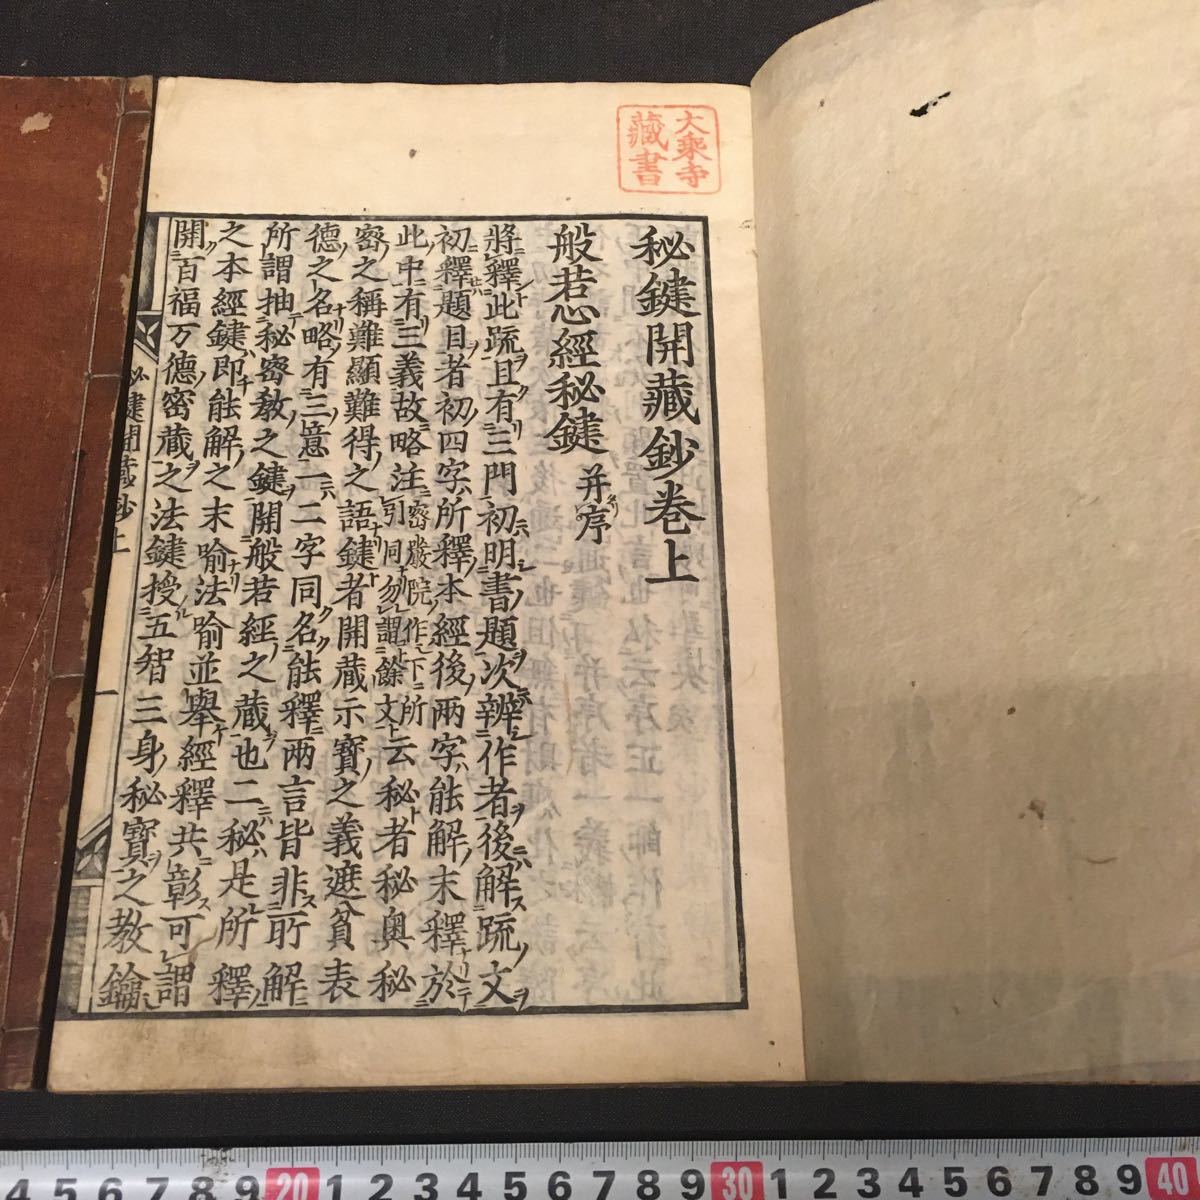 大乘寺
藏書
秘鍵開藏鈔卷上
般若心經秘鍵 并序
將釋此疏且有三門初明書題次辨作者後解疏文
初釋題目者初四字所釋本經後兩字能解末釋於
此中有三義故略注密嚴院作下所引同勿謂餘文云秘者秘奧秘
密之稱難顯難得之語鍵者開藏示寶之義遮貧表
德之名略有三意一二字同名能釋兩言皆非所解
所謂抽秘密教之鍵開般若經之藏也二秘是所釋
之本經鍵即能解之末喻法喻並舉經釋共彰可謂
開百福万德密藏之法鍵授五智三身秘寶之教鑰
秘鍵開藏鈔上
一
4 5 6 7 8 9 20 1 2 3 4 5 6 7 8 9 30 1 2 3 4 5 6 7 8 9 40